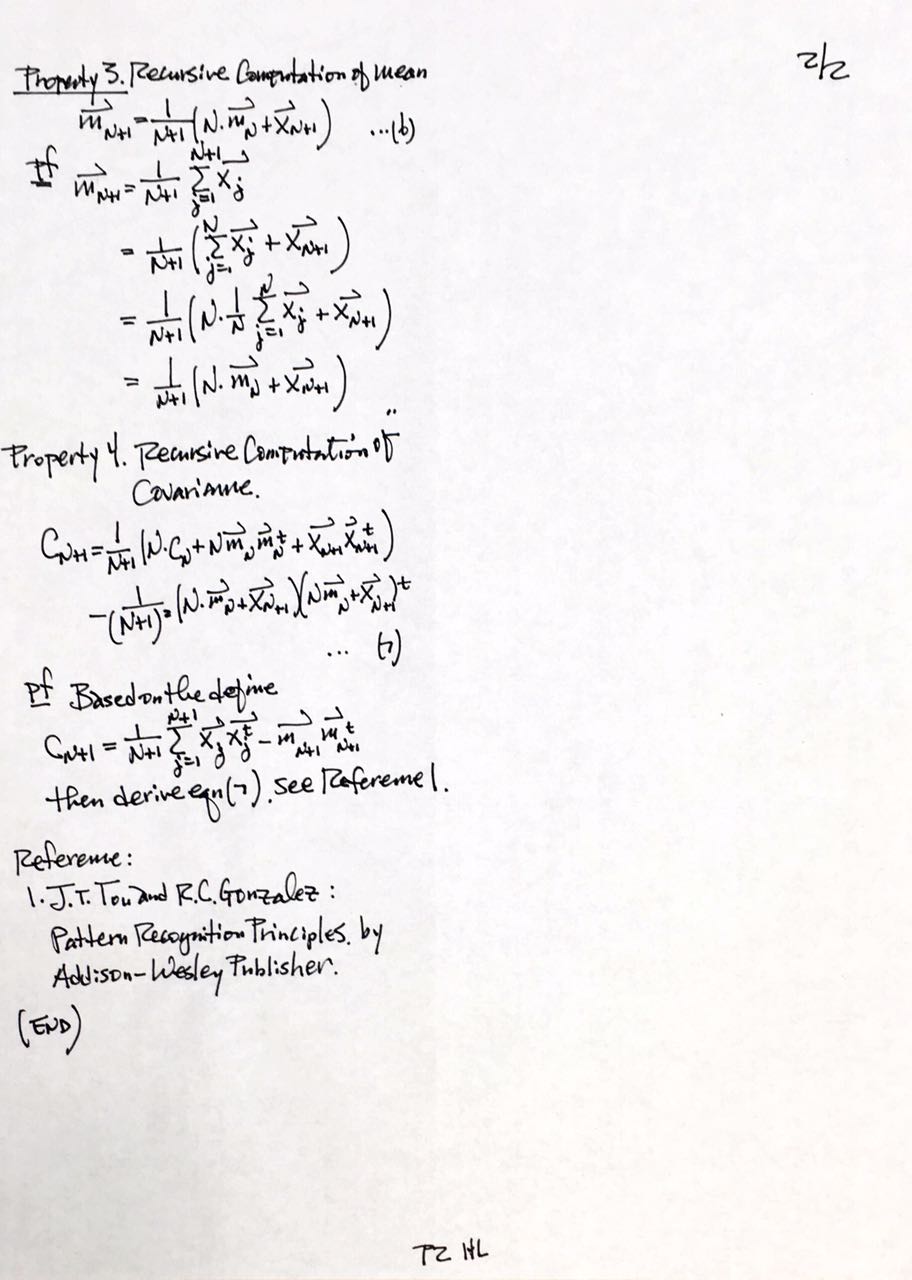 2/2
Property 3. Recursive Computation of mean
m⃗_{N+1} = 1/(N+1) (N·m⃗_N + x⃗_{N+1}) ...(6)
Pf m⃗_{N+1} = 1/(N+1) Σ_{j=1}^{N+1} x⃗_j
= 1/(N+1) (Σ_{j=1}^{N} x⃗_j + x⃗_{N+1})
= 1/(N+1) (N·1/N Σ_{j=1}^{N} x⃗_j + x⃗_{N+1})
= 1/(N+1) (N·m⃗_N + x⃗_{N+1})
Property 4. Recursive Computation of
Covariance.
C_{N+1} = 1/(N+1) (N·C_N + N m⃗_N m⃗_N^t + x⃗_{N+1} x⃗_{N+1}^t)
- 1/(N+1)² (N·m⃗_N + x⃗_{N+1})(N m⃗_N + x⃗_{N+1})^t
... (7)
Pf Based on the define
C_{N+1} = 1/(N+1) Σ_{j=1}^{N+1} x⃗_j x⃗_j^t - m⃗_{N+1} m⃗_{N+1}^t
then derive eqn(7). see Reference 1.
Reference:
1. J.T. Tou and R.C. Gonzalez:
Pattern Recognition Principles. by
Addison-Wesley Publisher.
(END)